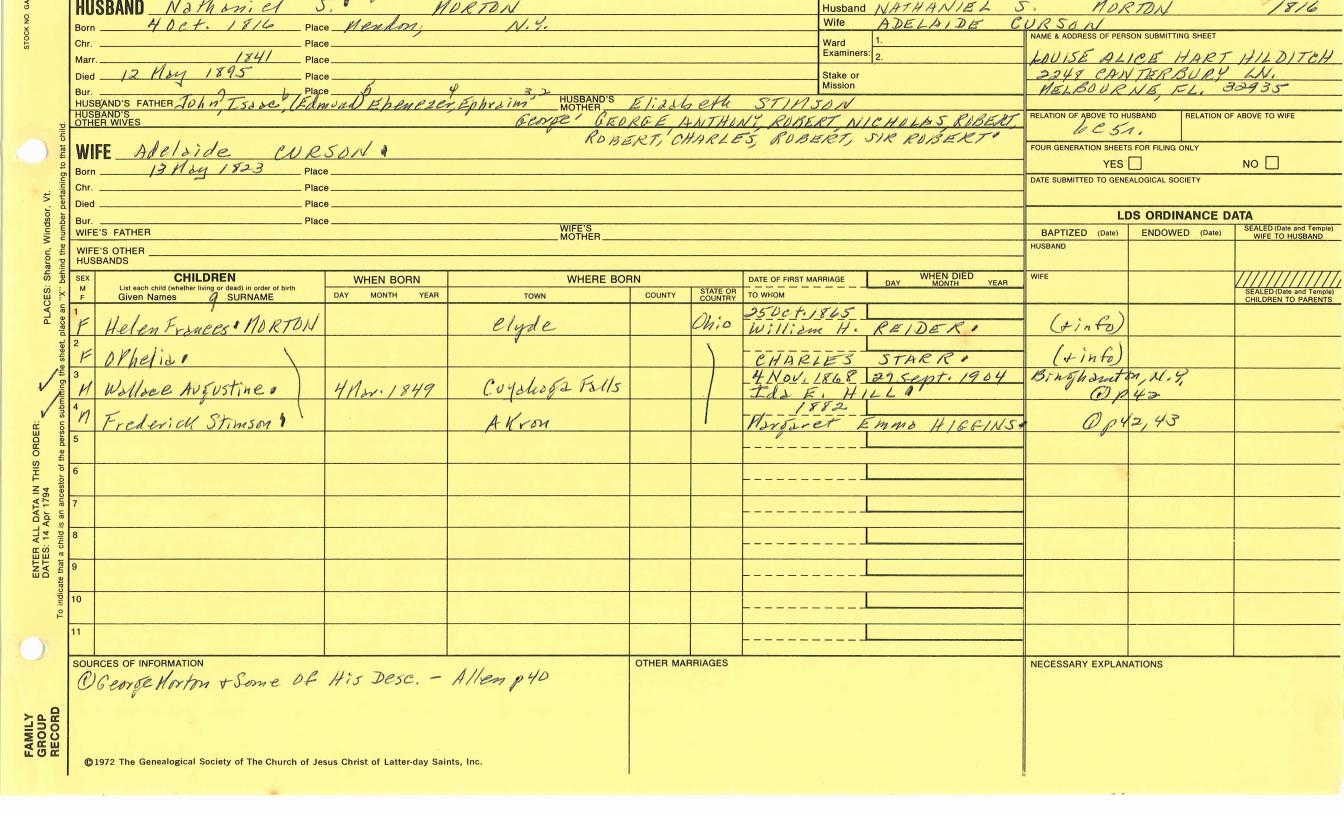 HUSBAND Nathaniel S. MORTON
Born 4 Oct. 1816 Place Mendon, N.Y.
Chr. Place
Marr. 1841 Place
Died 12 May 1895 Place
Bur. Place
HUSBAND'S FATHER John, Isaac, (Edmund) Ebenezer, Ephraim HUSBAND'S MOTHER Elizabeth STIMSON
HUSBAND'S OTHER WIVES George GEORGE ANTHONY, ROBERT, NICHOLAS, ROBERT,
ROBERT, CHARLES, ROBERT, SIR ROBERT
WIFE Adelaide CURSON
Born 13 May 1823 Place
Chr. Place
Died Place
Bur. Place
WIFE'S FATHER WIFE'S MOTHER
WIFE'S OTHER HUSBANDS
Husband NATHANIEL S. MORTON 1816
Wife ADELAIDE CURSON
Ward Examiners: 1.
2.
Stake or Mission
NAME & ADDRESS OF PERSON SUBMITTING SHEET
LOUISE ALICE HART HILDITCH
2248 CANTERBURY LN.
MELBOURNE, FL. 32935
RELATION OF ABOVE TO HUSBAND RELATION OF ABOVE TO WIFE
FOUR GENERATION SHEETS FOR FILING ONLY
YES NO
DATE SUBMITTED TO GENEALOGICAL SOCIETY
LDS ORDINANCE DATA
BAPTIZED (Date) ENDOWED (Date) SEALED (Date and Temple) WIFE TO HUSBAND
HUSBAND
WIFE
SEALED (Date and Temple) CHILDREN TO PARENTS
SEX M F CHILDREN
List each child (whether living or dead) in order of birth
Given Names SURNAME
WHEN BORN
DAY MONTH YEAR
WHERE BORN
TOWN COUNTY STATE OR COUNTRY
DATE OF FIRST MARRIAGE
TO WHOM
WHEN DIED
DAY MONTH YEAR
1 F Helen Frances MORTON Clyde Ohio 25 Oct. 1865 William H. REIDER (+info)
2 F Ophelia CHARLES STARR (+info)
3 M Wallace Augustine 4 Mar. 1849 Cuyahoga Falls 4 Nov. 1868 29 Sept. 1904 Ida E. HILL Binghamton, N.Y. p42
4 M Frederick Stimson Akron 1882 Margaret Emma HIGGINS p42, 43
5
6
7
8
9
10
11
SOURCES OF INFORMATION
① George Morton + Some Of His Desc. - Allen p40
OTHER MARRIAGES
NECESSARY EXPLANATIONS
©1972 The Genealogical Society of The Church of Jesus Christ of Latter-day Saints, Inc.
FAMILY GROUP RECORD
ENTER ALL DATA IN THIS ORDER:
DATES: 14 Apr 1794
PLACES: Sharon, Windsor, Vt.
To indicate that a child is an ancestor of the person submitting the sheet, place an "X" behind the number pertaining to that child.
STOCK NO.